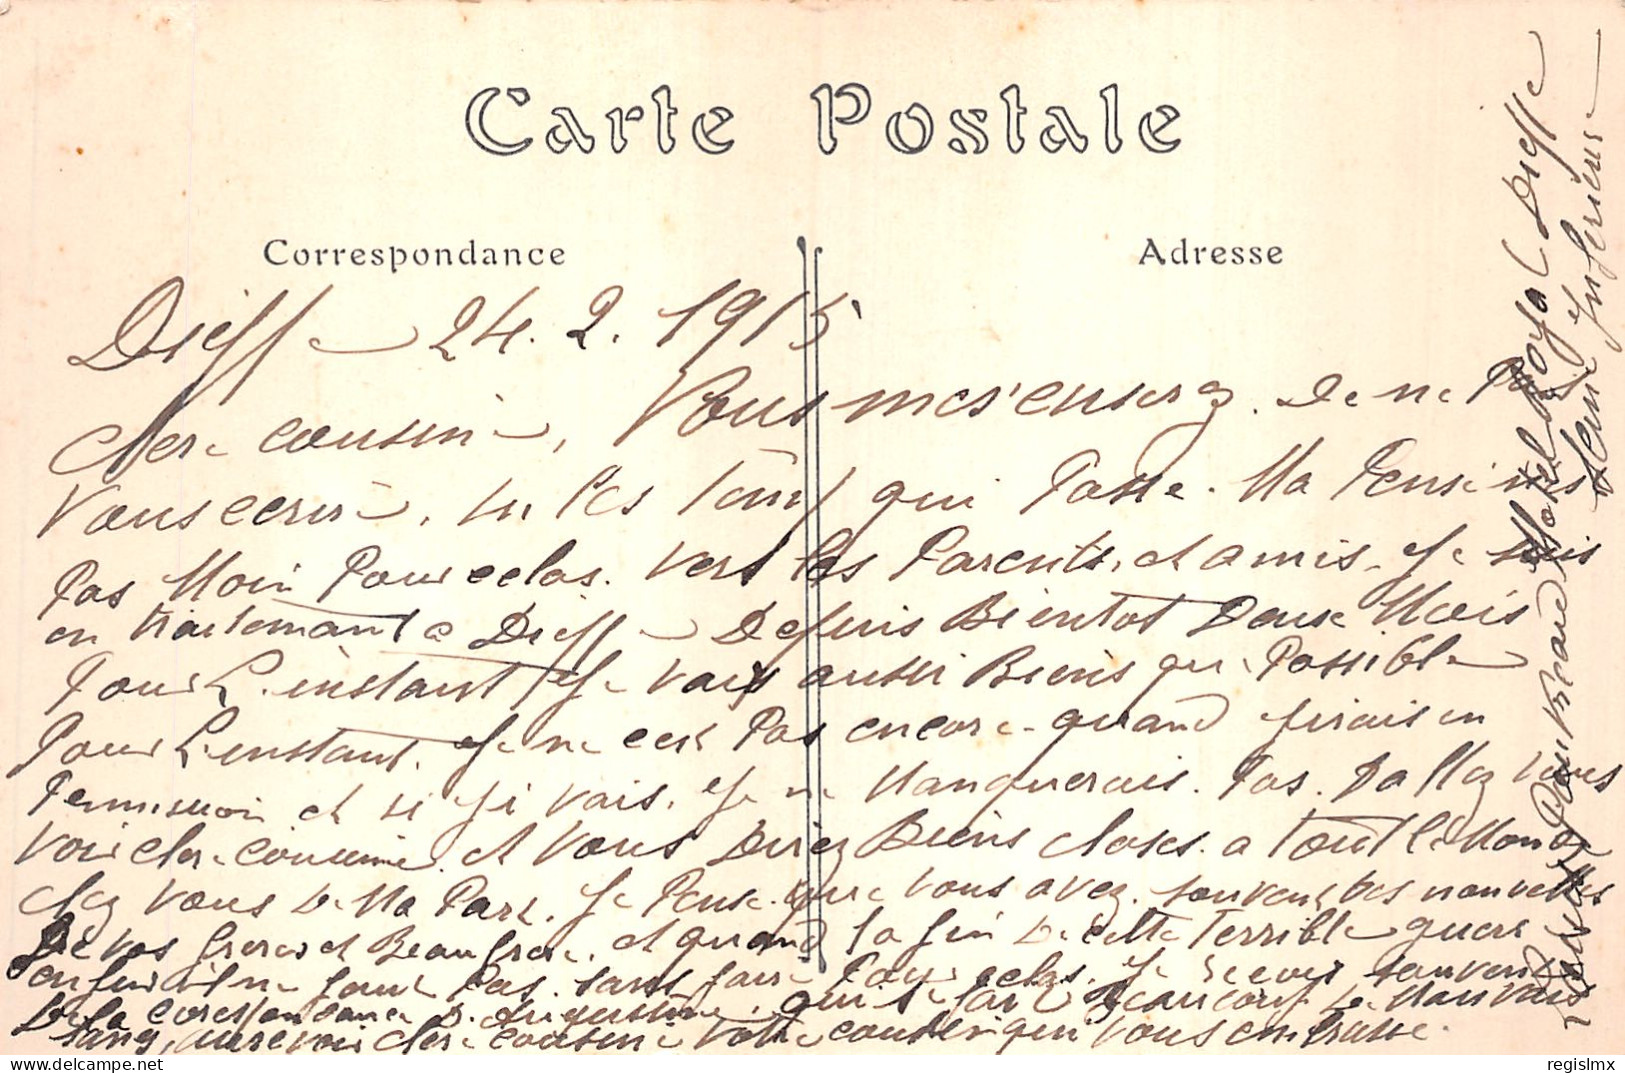 Carte Postale
Correspondance
Adresse
Dieppe 24. 2. 1915
Chere cousine, Vous m'escenserez. De ne Pas
Vous ecrire, tu les temps qui Passe. Ma Pensé n'es
Pas Moin Pour celas. vers les Parents, et amis. Je suis
en traitemant a Dieppe Depuis Bientot Deux Mois
Pour L'instant Je vais aussi Biens que Possible
Pour L'instant. Je ne ces Pas encore quand j'irais en
Permission et si j'i vais. Je ne Manquerais. Pas. D'allez vous
voir chere cousine. et vous Direz Biens choses. a tout le Monde
chez vous De Ma Part. Je Pense que vous avez souvent Des nouvelles
De vos freres et Beaufrere. et quand la fin De cette terrible guere
enfin il ne faut Pas. sans faire Pour celas. Je recois souvent
De la corespondance D'Augustine qui se fait Beaucoup De Mauvais
sang, aurevoir chere cousine Votre cousin qui vous embrasse.
Hotel Royal Dieppe
Seine Inferieure